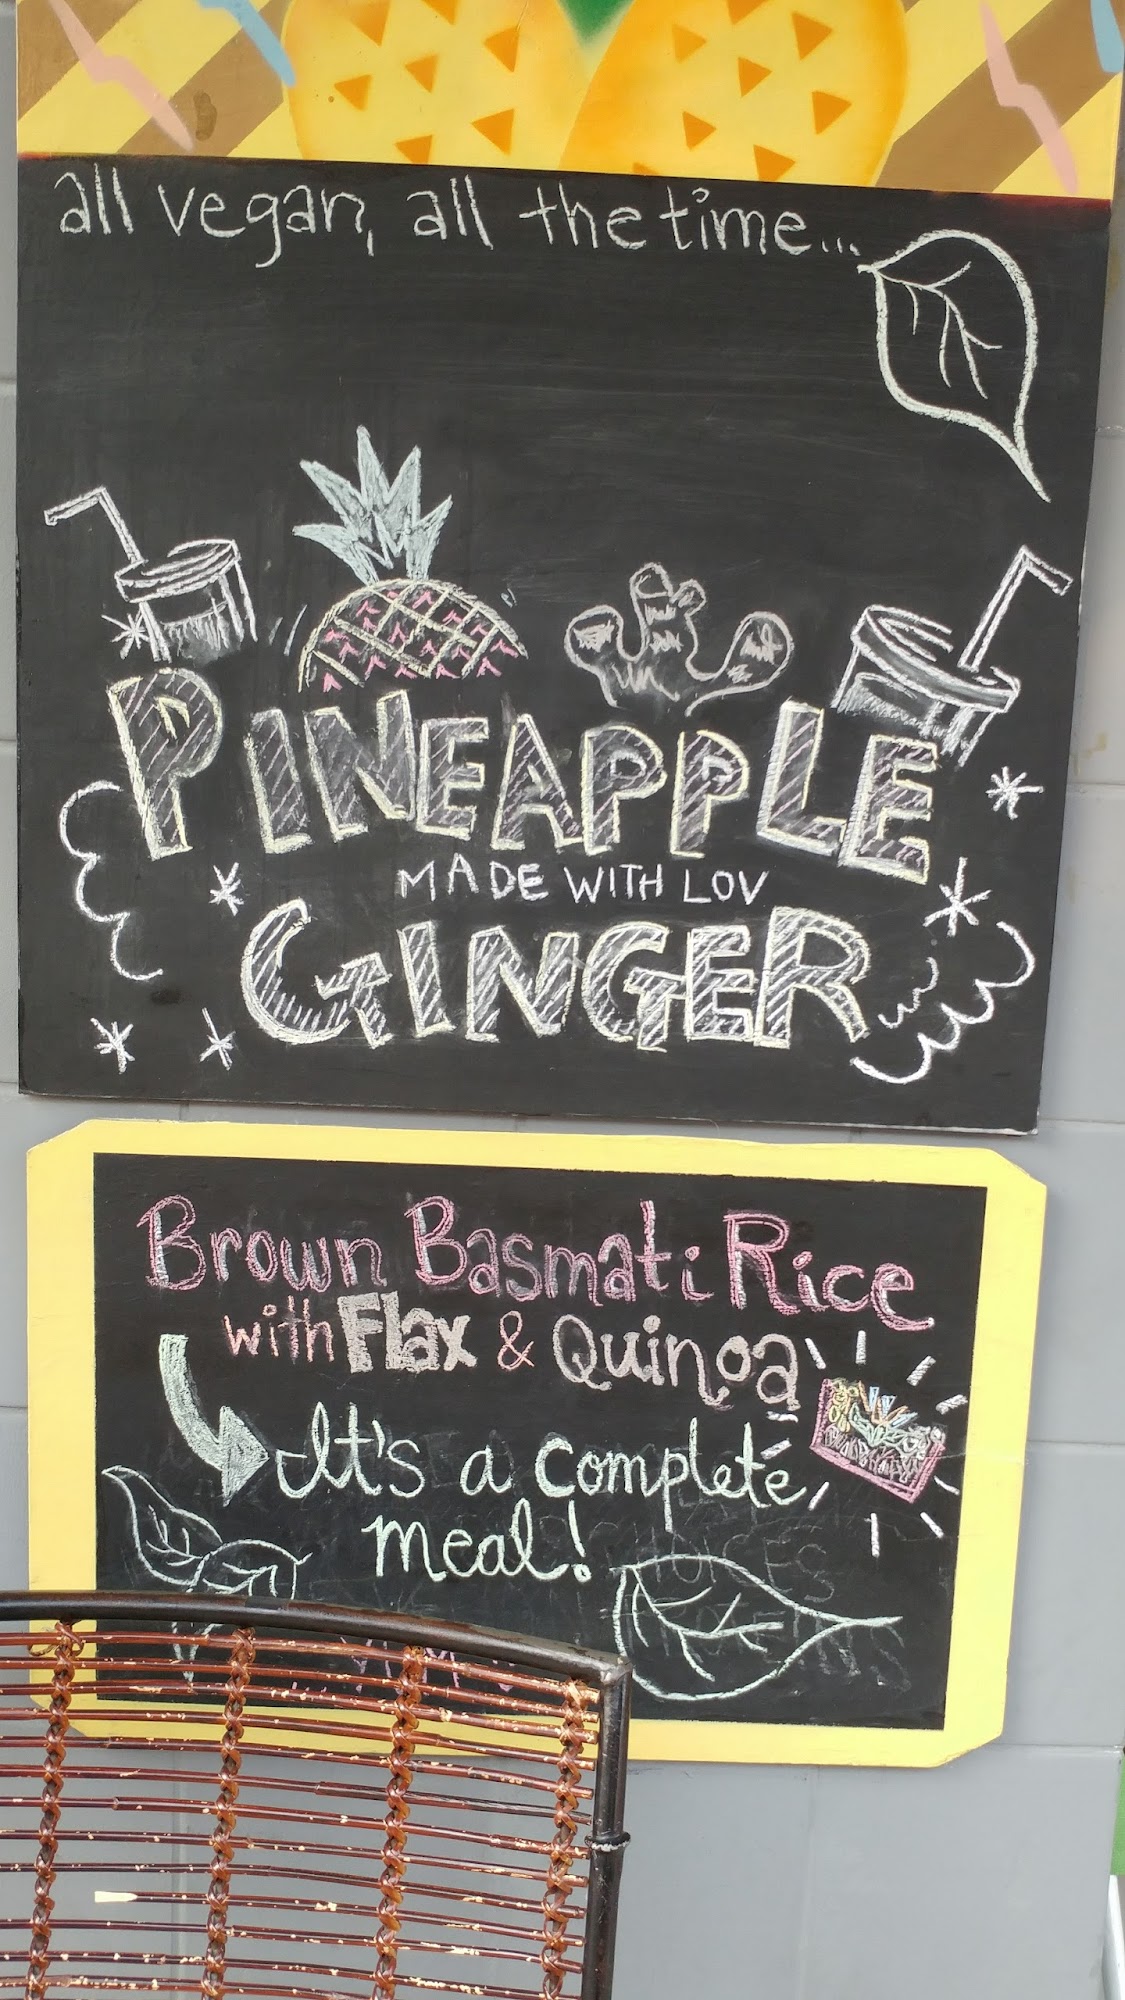 all vegan, all the time...
PINEAPPLE
MADE WITH LOV
GINGER
Brown Basmati Rice
with Flax & Quinoa
It's a complete
meal!